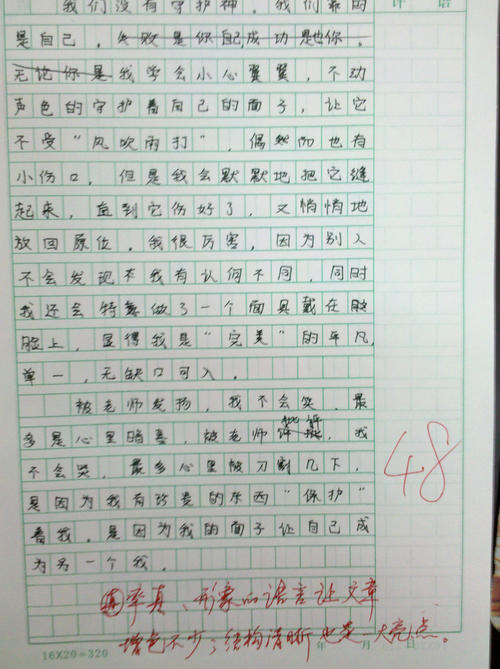 我们没有守护神。我们靠的 评 语
是自己，失败是你自己成功是也你。
无论你是我学会小心翼翼，不动
声色的守护着自己的面子，让它
不受“风吹雨打”，偶然而也有
小伤口，但是我会默默地把它缝
起来，直到它伤好了，又悄悄地
放回原位，我很厉害，因为别人
不会发现有我有认何不同，同时
我还会特意做了一个面具戴在脸
脸上，显得我是“完美”的平凡，
单一，无缺口可入。
被老师发扬，我不会笑，最
多是心里暗喜，被老师批评，我
不会哭，最多心里被刀割几下，
是因为我有珍贵的东西“保护”
着我，是因为我的面子让自己成
为另一个我。
48
率真、形象的语言让文章
增色不少；结构清晰也是一大亮点。
16X20=320 年 月 日